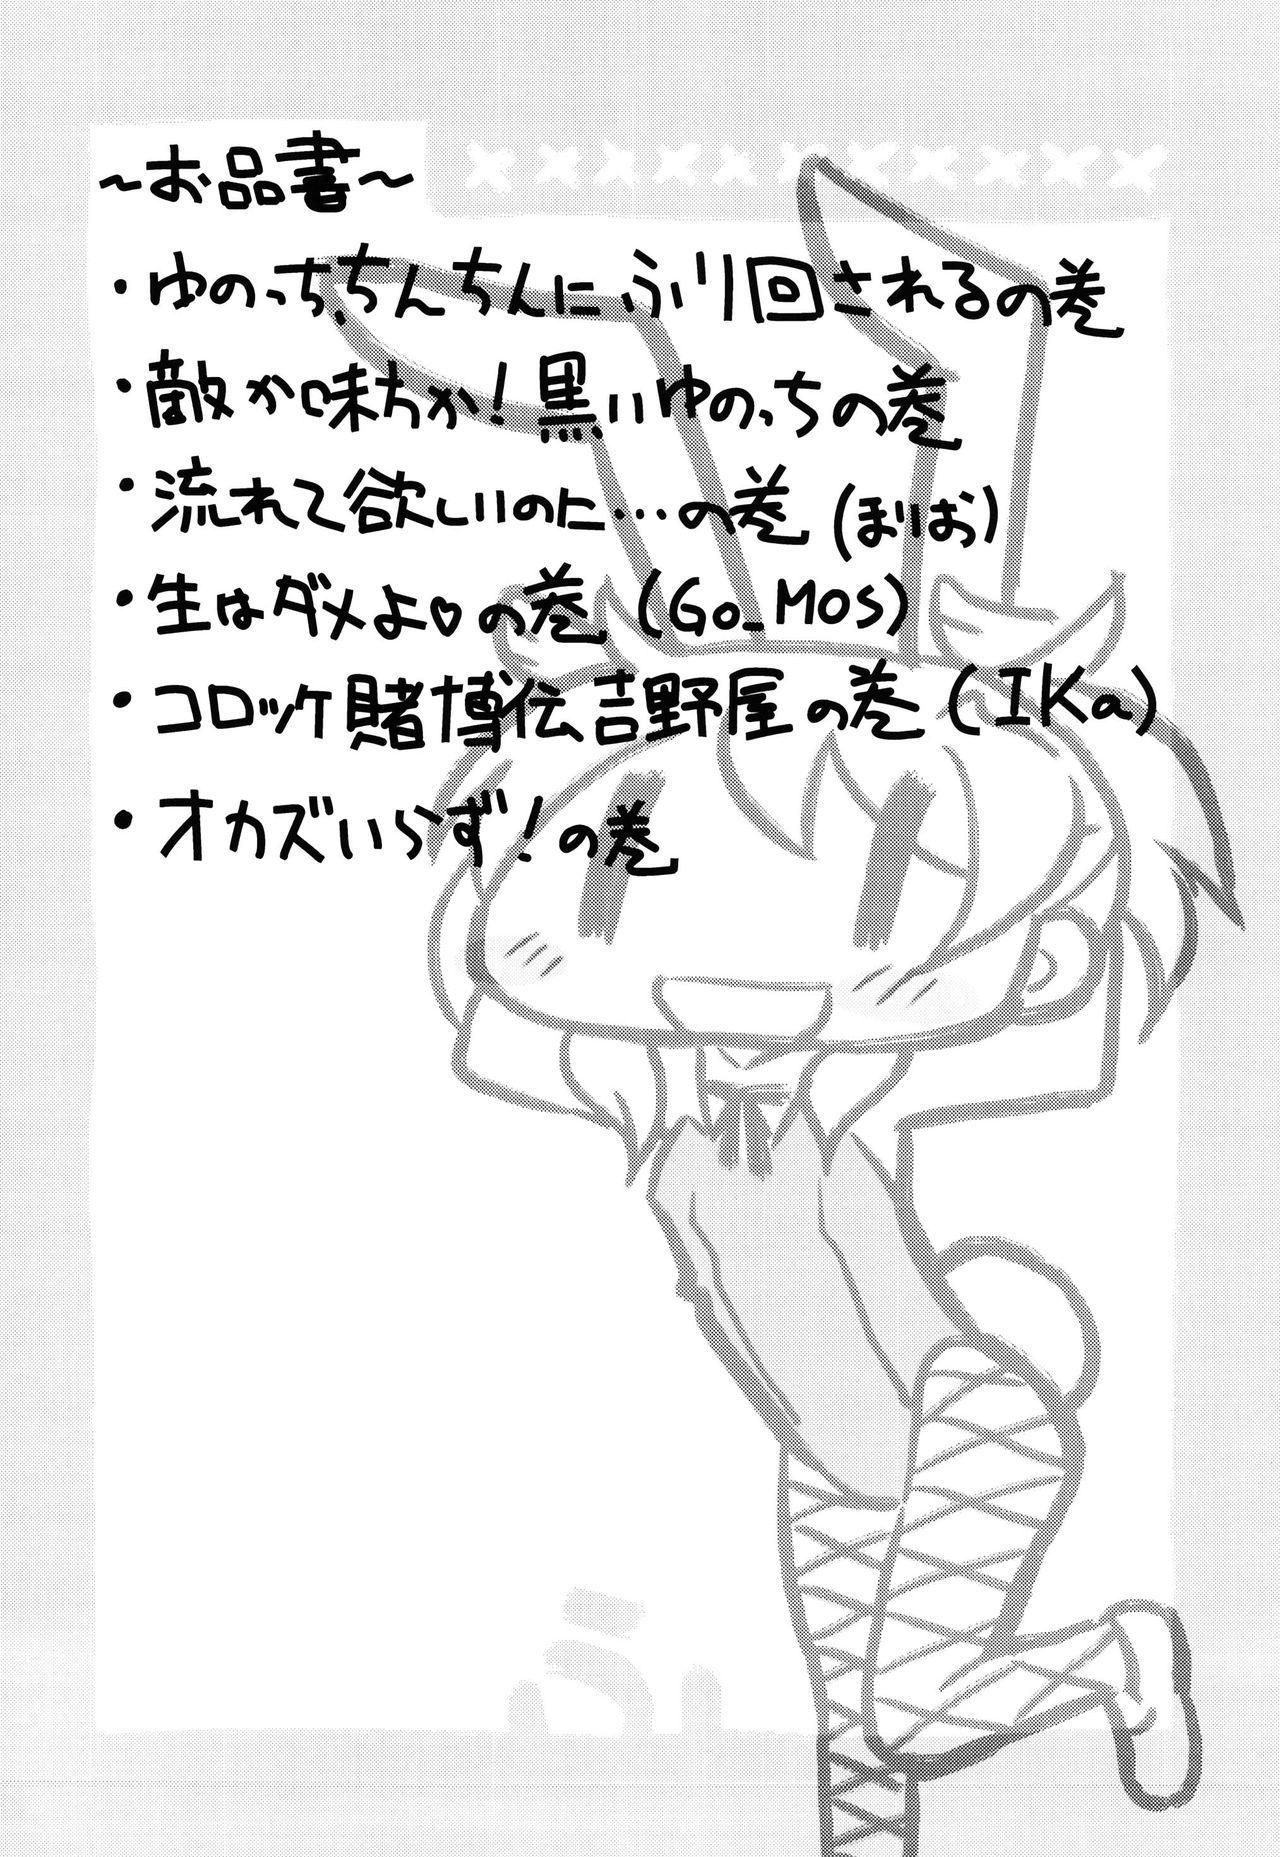 ～お品書～
・ゆのっち、ちんちんにふり回されるの巻
・敵か味方か！黒いゆのっちの巻
・流れて欲しいのに…の巻（まりお）
・生はダメよ♡の巻（Go_MOS）
・コロッケ賭博伝吉野屋の巻（IKa）
・オカズいらず！の巻